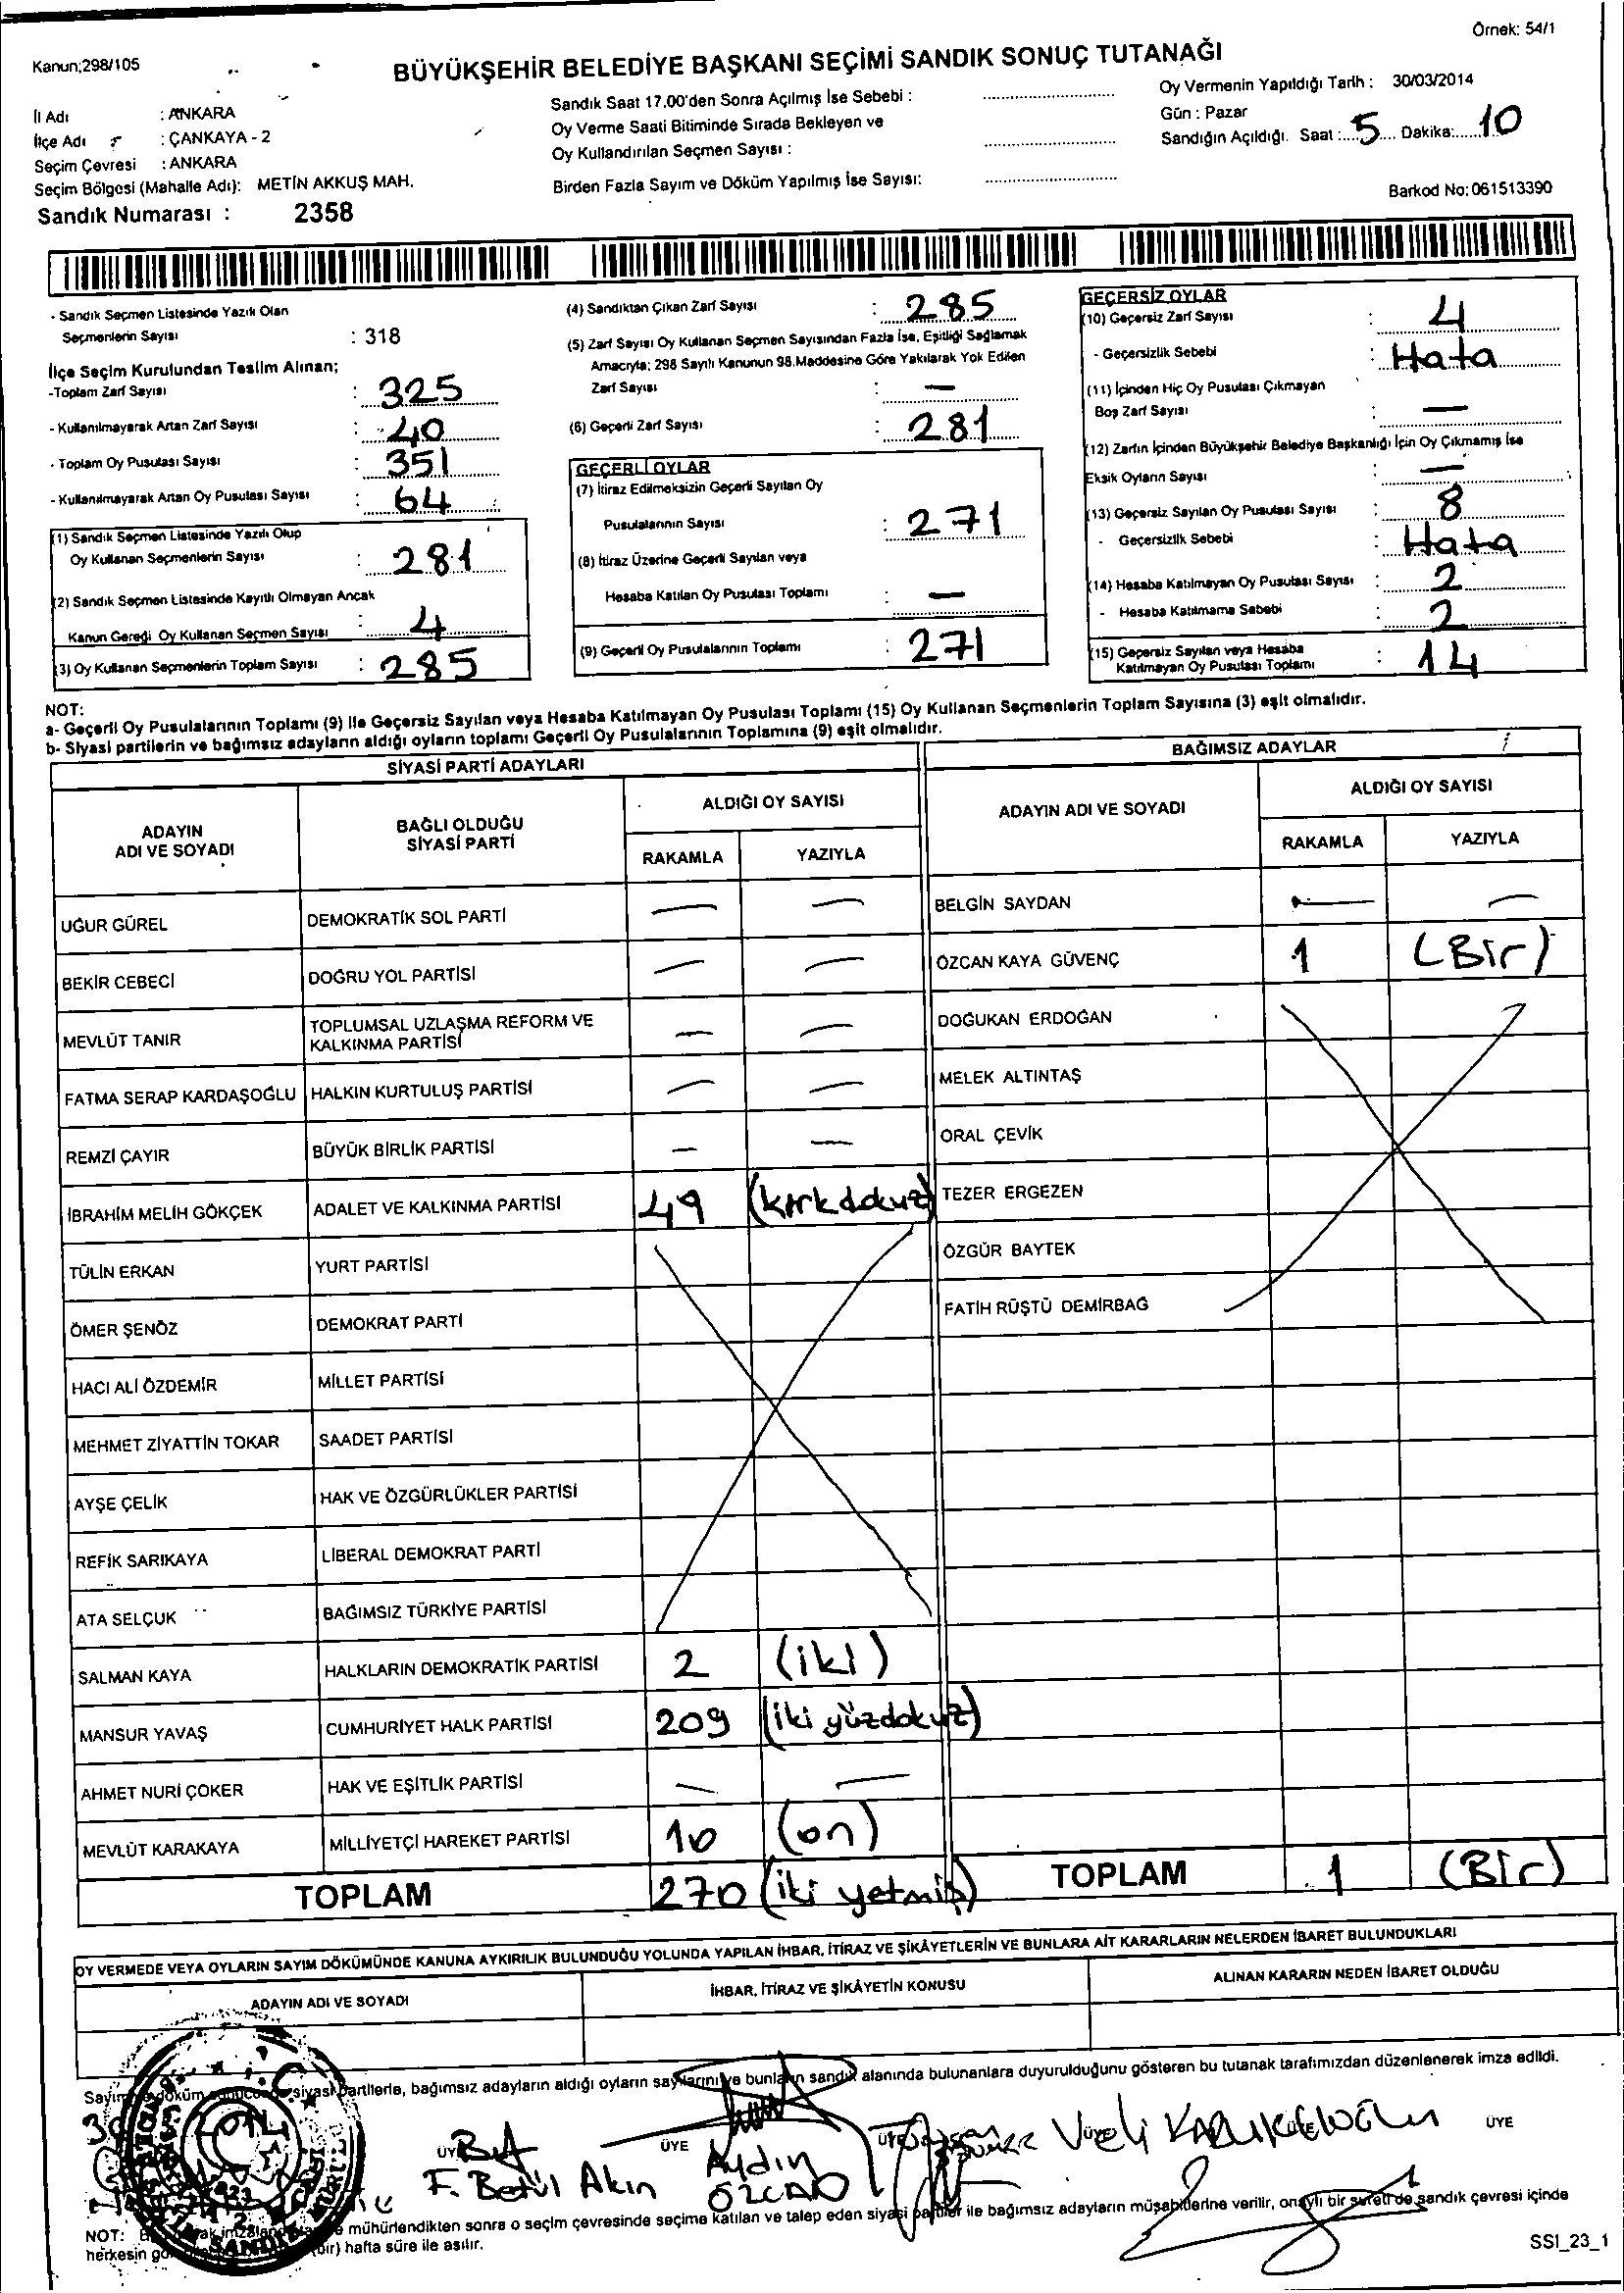 Örnek: 54/1
Kanun;298/105
BÜYÜKŞEHİR BELEDİYE BAŞKANI SEÇİMİ SANDIK SONUÇ TUTANAĞI
İl Adı : ANKARA
İlçe Adı : ÇANKAYA - 2
Seçim Çevresi : ANKARA
Seçim Bölgesi (Mahalle Adı): METİN AKKUŞ MAH.
Sandık Numarası : 2358
Sandık Saat 17.00'den Sonra Açılmış İse Sebebi :
Oy Verme Saati Bitiminde Sırada Bekleyen ve
Oy Kullandırılan Seçmen Sayısı :
Birden Fazla Sayım ve Döküm Yapılmış İse Sayısı:
Oy Vermenin Yapıldığı Tarih : 30/03/2014
Gün : Pazar
Sandığın Açıldığı. Saat : 5 Dakika: 10
Barkod No: 061513390
- Sandık Seçmen Listesinde Yazılı Olan
Seçmenlerin Sayısı : 318
İlçe Seçim Kurulundan Teslim Alınan;
-Toplam Zarf Sayısı : 325
- Kullanılmayarak Artan Zarf Sayısı : 40
- Toplam Oy Pusulası Sayısı : 351
- Kullanılmayarak Artan Oy Pusulası Sayısı : 64
(1) Sandık Seçmen Listesinde Yazılı Olup
Oy Kullanan Seçmenlerin Sayısı : 281
(2) Sandık Seçmen Listesinde Kayıtlı Olmayan Ancak
Kanun Gereği Oy Kullanan Seçmen Sayısı : 4
(3) Oy Kullanan Seçmenlerin Toplam Sayısı : 285
(4) Sandıktan Çıkan Zarf Sayısı : 285
(5) Zarf Sayısı Oy Kullanan Seçmen Sayısından Fazla İse, Eşitliği Sağlamak
Amacıyla; 298 Sayılı Kanunun 98.Maddesine Göre Yakılarak Yok Edilen
Zarf Sayısı : —
(6) Geçerli Zarf Sayısı : 281
GEÇERLİ OYLAR
(7) İtiraz Edilmeksizin Geçerli Sayılan Oy
Pusulalarının Sayısı : 271
(8) İtiraz Üzerine Geçerli Sayılan veya
Hesaba Katılan Oy Pusulası Toplamı : —
(9) Geçerli Oy Pusulalarının Toplamı : 271
GEÇERSİZ OYLAR
(10) Geçersiz Zarf Sayısı : 4
- Geçersizlik Sebebi : Hata
(11) İçinden Hiç Oy Pusulası Çıkmayan
Boş Zarf Sayısı : —
(12) Zarfın İçinden Büyükşehir Belediye Başkanlığı İçin Oy Çıkmamış İse
Eksik Oyların Sayısı : —
(13) Geçersiz Sayılan Oy Pusulası Sayısı : 8
- Geçersizlik Sebebi : Hata
(14) Hesaba Katılmayan Oy Pusulası Sayısı : 2
- Hesaba Katılmama Sebebi : 2
(15) Geçersiz Sayılan veya Hesaba
Katılmayan Oy Pusulası Toplamı : 14
NOT:
a- Geçerli Oy Pusulalarının Toplamı (9) ile Geçersiz Sayılan veya Hesaba Katılmayan Oy Pusulası Toplamı (15) Oy Kullanan Seçmenlerin Toplam Sayısına (3) eşit olmalıdır.
b- Siyasi partilerin ve bağımsız adayların aldığı oyların toplamı Geçerli Oy Pusulalarının Toplamına (9) eşit olmalıdır.
SİYASİ PARTİ ADAYLARI
ADAYIN
ADI VE SOYADI
BAĞLI OLDUĞU
SİYASİ PARTİ
ALDIĞI OY SAYISI
RAKAMLA YAZIYLA
UĞUR GÜREL DEMOKRATİK SOL PARTİ — —
BEKİR CEBECİ DOĞRU YOL PARTİSİ — —
MEVLÜT TANIR TOPLUMSAL UZLAŞMA REFORM VE
KALKINMA PARTİSİ — —
FATMA SERAP KARDAŞOĞLU HALKIN KURTULUŞ PARTİSİ — —
REMZİ ÇAYIR BÜYÜK BİRLİK PARTİSİ — —
İBRAHİM MELİH GÖKÇEK ADALET VE KALKINMA PARTİSİ 49 (kırkdokuz)
TÜLİN ERKAN YURT PARTİSİ
ÖMER ŞENÖZ DEMOKRAT PARTİ
HACI ALİ ÖZDEMİR MİLLET PARTİSİ
MEHMET ZİYATTİN TOKAR SAADET PARTİSİ
AYŞE ÇELİK HAK VE ÖZGÜRLÜKLER PARTİSİ
REFİK SARIKAYA LİBERAL DEMOKRAT PARTİ
ATA SELÇUK BAĞIMSIZ TÜRKİYE PARTİSİ
SALMAN KAYA HALKLARIN DEMOKRATİK PARTİSİ 2 (iki)
MANSUR YAVAŞ CUMHURİYET HALK PARTİSİ 209 (iki yüzdokuz)
AHMET NURİ ÇOKER HAK VE EŞİTLİK PARTİSİ — —
MEVLÜT KARAKAYA MİLLİYETÇİ HAREKET PARTİSİ 10 (on)
TOPLAM 270 (iki yetmiş)
BAĞIMSIZ ADAYLAR
ADAYIN ADI VE SOYADI
ALDIĞI OY SAYISI
RAKAMLA YAZIYLA
BELGİN SAYDAN — —
ÖZCAN KAYA GÜVENÇ 1 (Bir)
DOĞUKAN ERDOĞAN
MELEK ALTINTAŞ
ORAL ÇEVİK
TEZER ERGEZEN
ÖZGÜR BAYTEK
FATİH RÜŞTÜ DEMİRBAĞ
TOPLAM 1 (Bir)
OY VERMEDE VEYA OYLARIN SAYIM DÖKÜMÜNDE KANUNA AYKIRILIK BULUNDUĞU YOLUNDA YAPILAN İHBAR, İTİRAZ VE ŞİKÂYETLERİN VE BUNLARA AİT KARARLARIN NELERDEN İBARET BULUNDUKLARI
ADAYIN ADI VE SOYADI
İHBAR, İTİRAZ VE ŞİKÂYETİN KONUSU
ALINAN KARARIN NEDEN İBARET OLDUĞU
siyasi partilerle, bağımsız adayların aldığı oyların sayılarını ve bunların sandık alanında bulunanlara duyurulduğunu gösteren bu tutanak tarafımızdan düzenlenerek imza edildi.
ÜYE ÜYE ÜYE
F. Betül Akın
Aydın
ÖZCAN
Veli
NOT: mühürlendikten sonra o seçim çevresinde seçime katılan ve talep eden siyasi partiler ile bağımsız adayların müşahitlerine verilir, onaylı bir sureti de sandık çevresi içinde
herkesin (bir) hafta süre ile asılır.
SSI_23_1